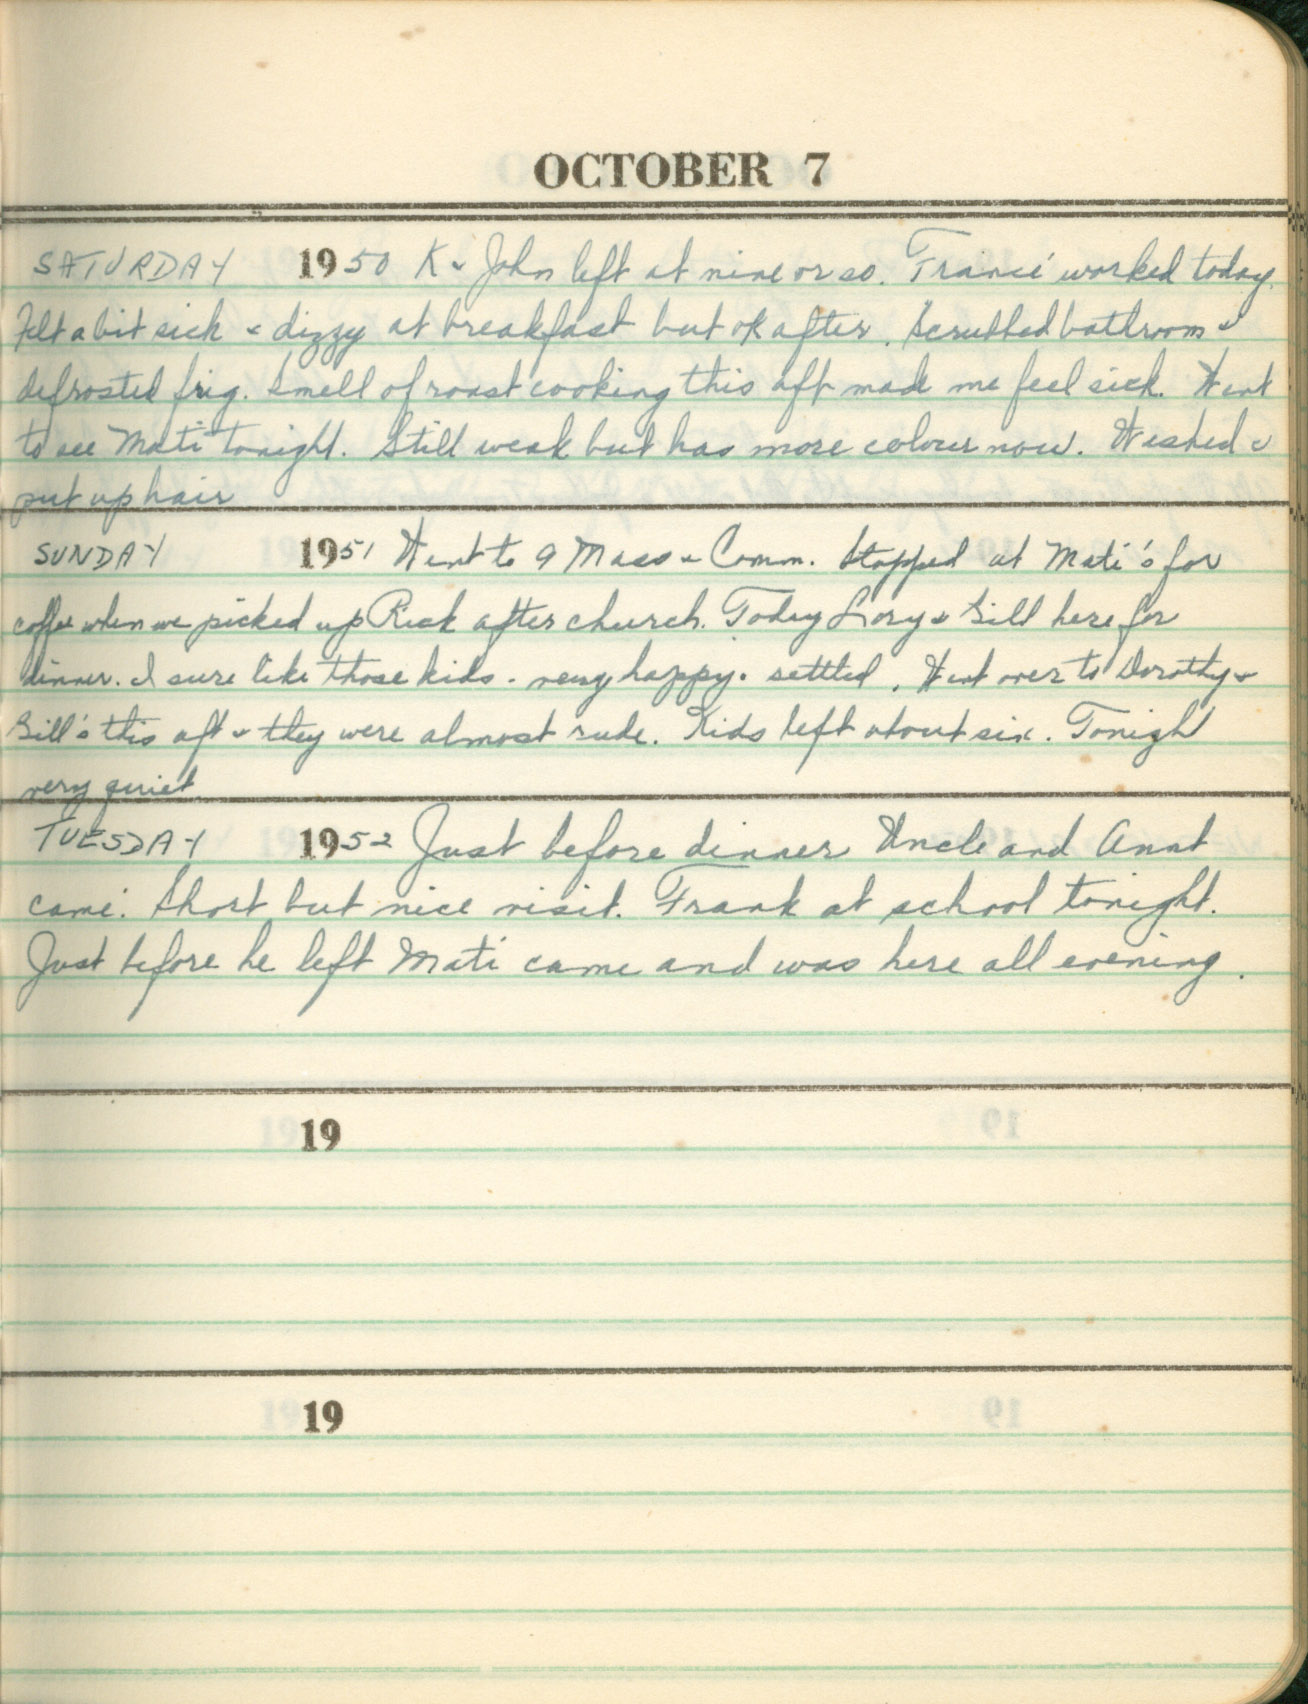 OCTOBER 7
SATURDAY 1950 K & John left at nine or so. Francé worked today.
Felt a bit sick & dizzy at breakfast but ok after. Scrubbed bathroom &
defrosted frig. Smell of roast cooking this aft made me feel sick. Went
to see Mati tonight. Still weak but has more colour now. Washed &
put up hair
SUNDAY 1951 Went to 9 Mass & Comm. Stopped at Mati's for
coffee when we picked up Rick after church. Today Lory & Bill here for
dinner. I sure like those kids - very happy & settled. Went over to Dorothy &
Bill's this aft & they were almost rude. Kids left about six. Tonight
very quiet
TUESDAY 1952 Just before dinner Uncle and Aunt
came. Short but nice visit. Frank at school tonight.
Just before he left Mati came and was here all evening.
19
19